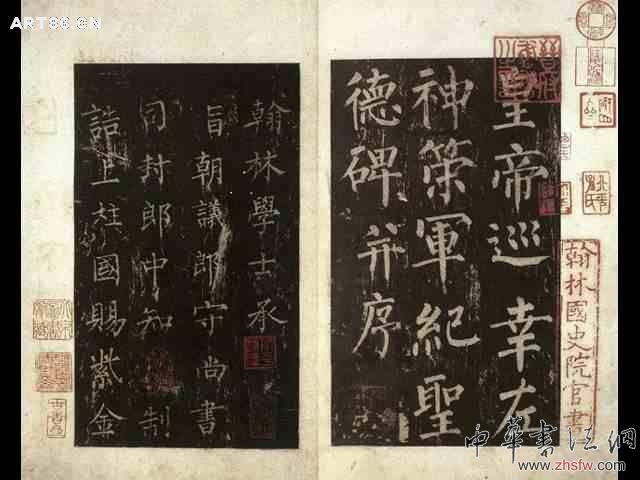 皇帝巡幸左
神策軍紀聖
德碑并序
翰林國史院官書
翰林學士承
旨朝議郎守尚書
司封郎中知制
誥上柱國賜紫金
ART86.CN
中华書法網
www.zhsfw.com